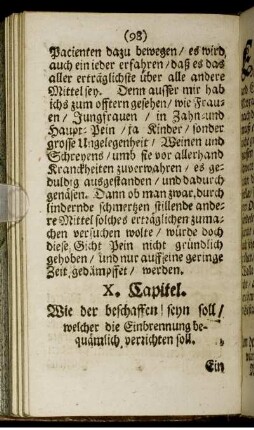 (98)
Pacienten dazu bewegen / es wird
auch ein ieder erfahren / daß es das
aller erträglichste über alle andere
Mittel sey. Denn ausser mir hab
ichs zum offtern gesehen / wie Frau-
en / Jungfrauen / in Zahn- und
Haupt-Pein / ja Kinder / sonder
grosse Ungelegenheit / Weinen und
Schreyens / umb sie vor allerhand
Kranckheiten zuverwahren / es ge-
duldig ausgestanden / und dadurch
genäsen. Dann ob man zwar durch
lindernde schmertzen stillende ande-
re Mittel solches erträglichen zuma-
chen versuchen wolte / würde doch
diese Gicht Pein nicht gründlich
gehoben / und nur auff eine geringe
Zeit gedämpffet / werden.
X. Capitel.
Wie der beschaffen seyn soll /
welcher die Einbrennung be-
quämlich verrichten soll.
Ein